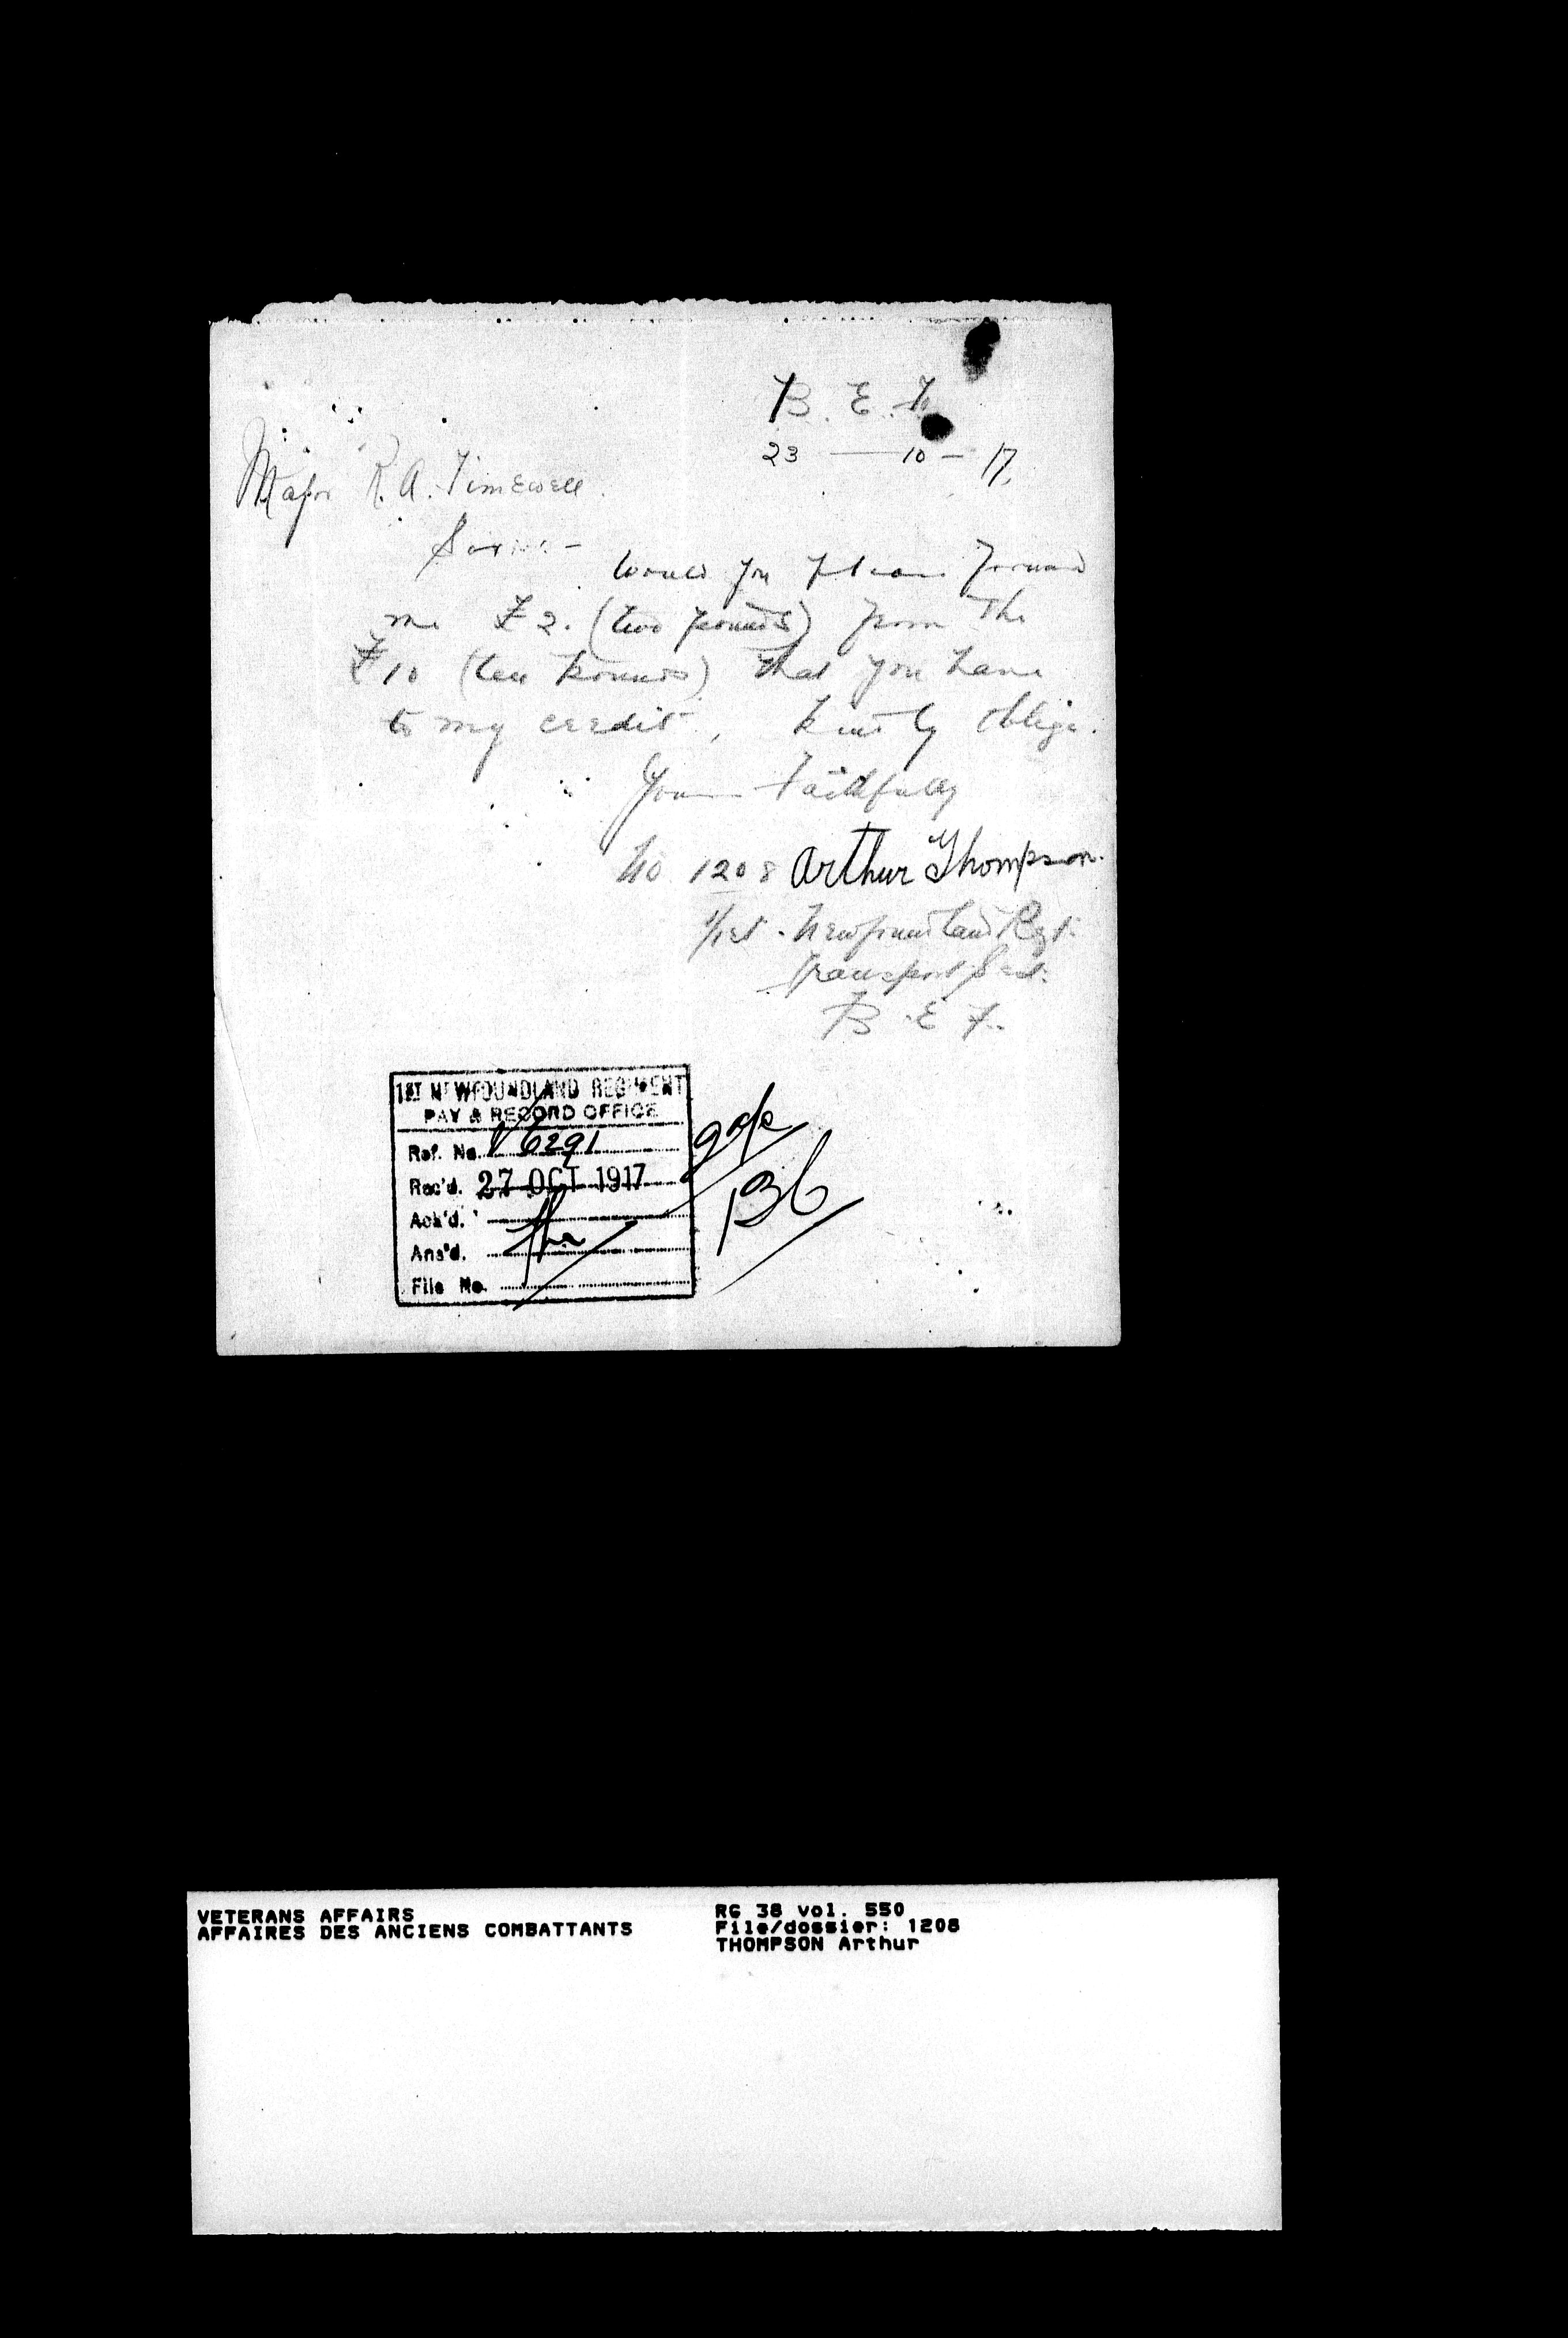 B. E. F.
23 — 10 — 17.
Major R. A. Timewell.
Would you please forward
me £2. (two pounds) from the
£10 (ten pounds) that you have
to my credit, kindly oblige.
Yours Faithfully
No. 1208 Arthur Thompson.
1/1st. Newfoundland Regt.
Transport Sect.
B. E. F.
1ST NEWFOUNDLAND REGIMENT
PAY & RECORD OFFICE
Ref. No. 6291
Rec'd. 27 OCT 1917
Ack'd.
Ans'd.
File No.
VETERANS AFFAIRS
AFFAIRES DES ANCIENS COMBATTANTS
RG 38 vol. 550
File/dossier: 1208
THOMPSON Arthur